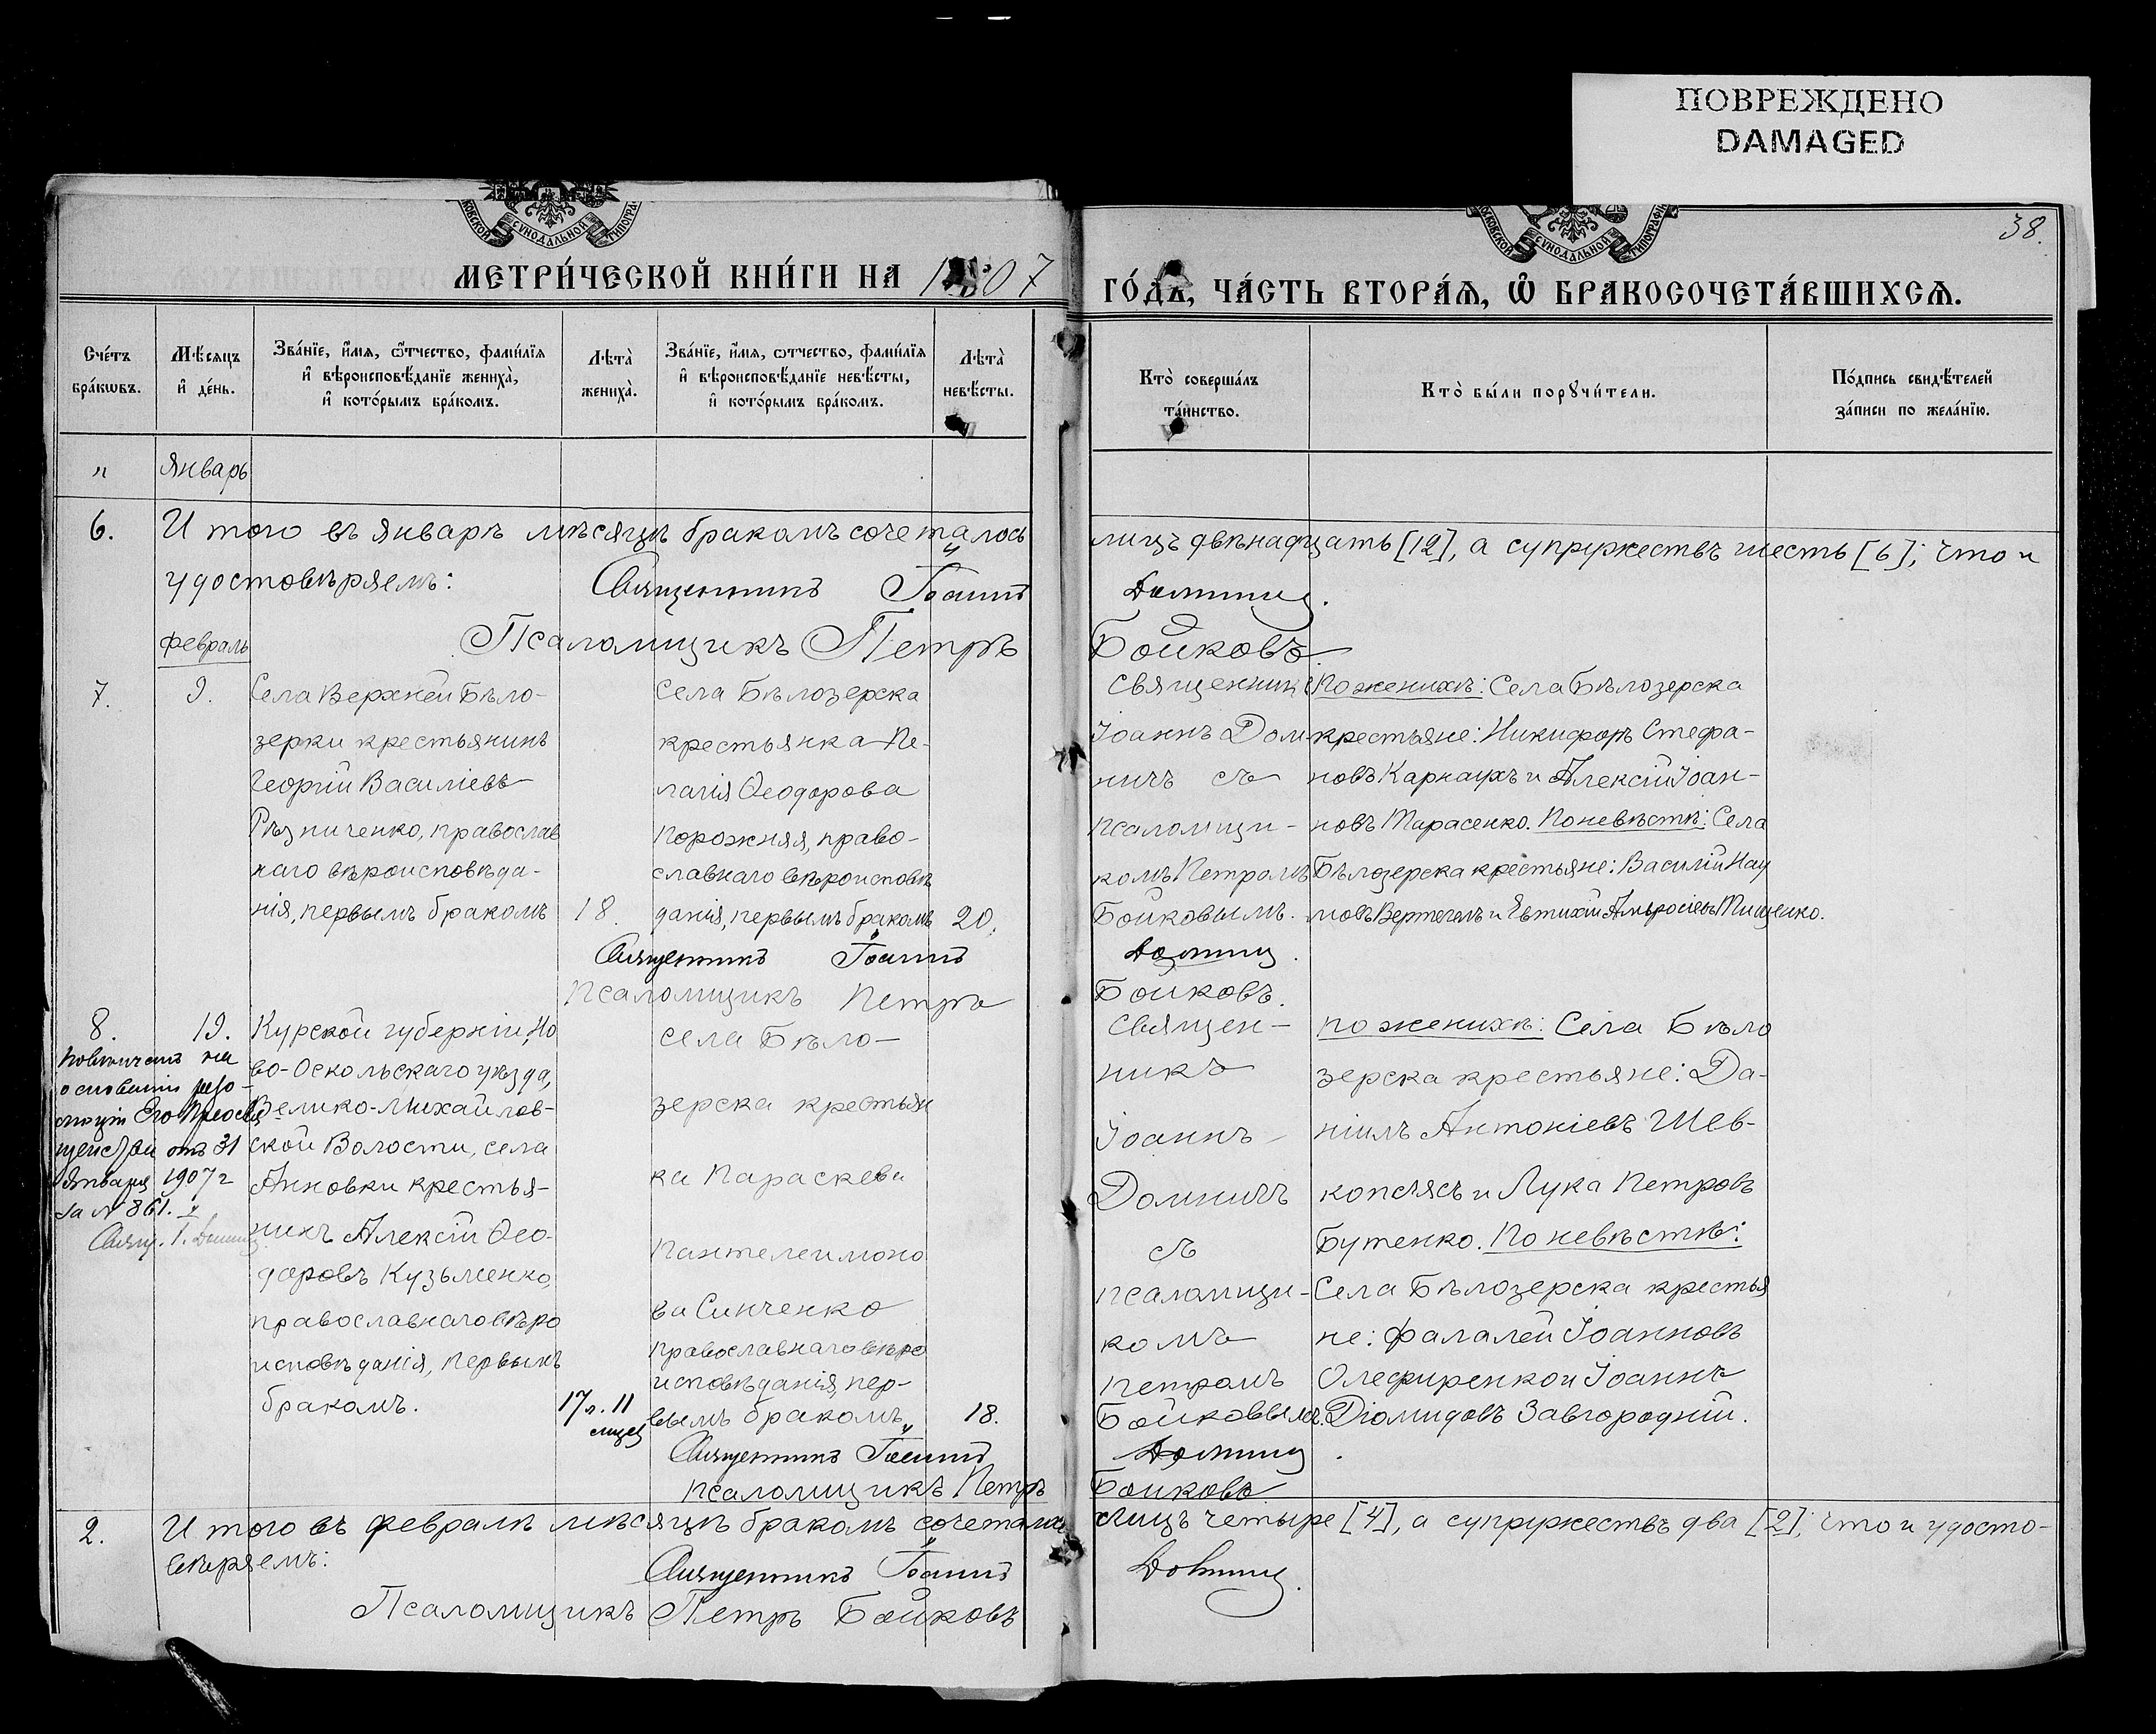 ПОВРЕЖДЕНО
DAMAGED
МОСКОВСКОЙ СѴНОДАЛЬНОЙ ТИПОГРАФІИ
МОСКОВСКОЙ СѴНОДАЛЬНОЙ ТИПОГРАФІИ
38.
МЕТРИ́ЧЕСКОЙ КНИ́ГИ НА 1907
ГО́ДЪ, ЧА́СТЬ ВТОРА́Ѧ, Ѽ БРАКОСОЧЕТА́ВШИХСѦ.
Сче́тъ
бра́кѡвъ.
Мѣ́сяцъ
и҆ де́нь.
Зва́нїе, и҆́мѧ, ѻ҆́тчество, фами́лїѧ
и҆ вѣроисповѣ́данїе жениха̀,
и҆ кото́рымъ бра́комъ.
Лѣта̀
жениха̀.
Зва́нїе, и҆́мѧ, ѻ҆́тчество, фами́лїѧ
и҆ вѣроисповѣ́данїе невѣ́сты,
и҆ кото́рымъ бра́комъ.
Лѣта̀
невѣ́сты.
Кто̀ соверша́лъ
та́инство.
Кто̀ бы́ли порꙋчи́тели.
По́дпись свидѣ́телей
за́писи по жела́нїю.
„
Январь
6.
И того въ Январѣ мѣсяцѣ бракомъ сочеталось
лицъ двѣнадцать [12], а супружествъ шесть [6]; что и
удостовѣряемъ:
Священникъ Іоаннъ
Домничъ.
Псаломщикъ Петръ
Бойковъ.
Февраль
7.
9.
Села Верхней Бѣло-
зерки крестьянинъ
Георгій Василіевъ
Рѣзниченко, православ
наго вѣроисповѣда-
нія, первымъ бракомъ
18.
Села Бѣлозерска
крестьянка Пе-
лагія Ѳеодорова
Порожняя, право-
славнаго вѣроисповѣ
данія, первымъ бракомъ
20.
Священникъ
Іоаннъ Дом-
ничъ съ
псаломщи-
комъ Петромъ
Бойковымъ.
По женихѣ: Села Бѣлозерска
крестьяне: Никифоръ Стефа-
новъ Карнаухъ и Алексій Іоан-
новъ Тарасенко. По невѣстѣ: Села
Бѣлозерска крестьяне: Василій Нау
мовъ Вертегелъ и Евтихій Амвросіевъ Тищенко.
Священникъ Іоаннъ
Домничъ.
Псаломщикъ Петръ
Бойковъ.
8.
19.
Повѣнчанъ на
основаніи резо-
люціи Его Преосвя
щенства отъ 31
Января 1907 г
за № 861.
Свящ. І. Домничъ.
Курской губерніи, Но
во-Оскольскаго уѣзда,
Велико-Михайлов-
ской Волости, села
Анновки крестья-
нинъ Алексій Ѳео-
доровъ Кузьменко,
православнаго вѣро
исповѣданія, первымъ
бракомъ.
17 л. 11
мѣсяц
Села Бѣло-
зерска крестьян
ка Параскева
Пантелеимоно
ва Синченко
православнаго вѣро
исповѣданія, пер-
вымъ бракомъ
18.
Священ-
никъ
Іоаннъ
Домничъ
съ
псаломщи-
комъ
Петромъ
Бойковымъ.
По женихѣ: Села Бѣло
зерска крестьяне: Да-
ніилъ Антоніевъ Шев-
коплясъ и Лука Петровъ
Бутенко. По невѣстѣ:
Села Бѣлозерска крестья
не: Фалалей Іоанновъ
Олефиренко и Іоаннъ
Діомидовъ Завгородній.
Священникъ Іоаннъ
Домничъ.
Псаломщикъ Петръ
Бойковъ
2.
И того въ февралѣ мѣсяцѣ бракомъ сочеталось
лицъ четыре [4], а супружествъ два [2]; что и удосто-
вѣряемъ:
Священникъ Іоаннъ
Домничъ.
Псаломщикъ Петръ Бойковъ